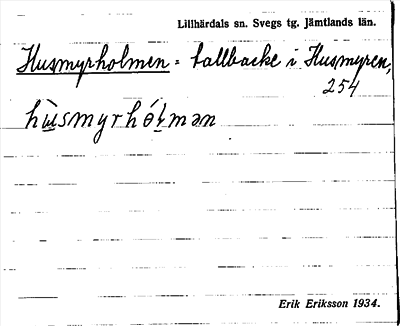 Lillhärdals sn. Svegs tg. Jämtlands län.
Husmyrholmen = tallbacke i Husmyren,
254
hùsmyrhóɫmən
Erik Eriksson 1934.